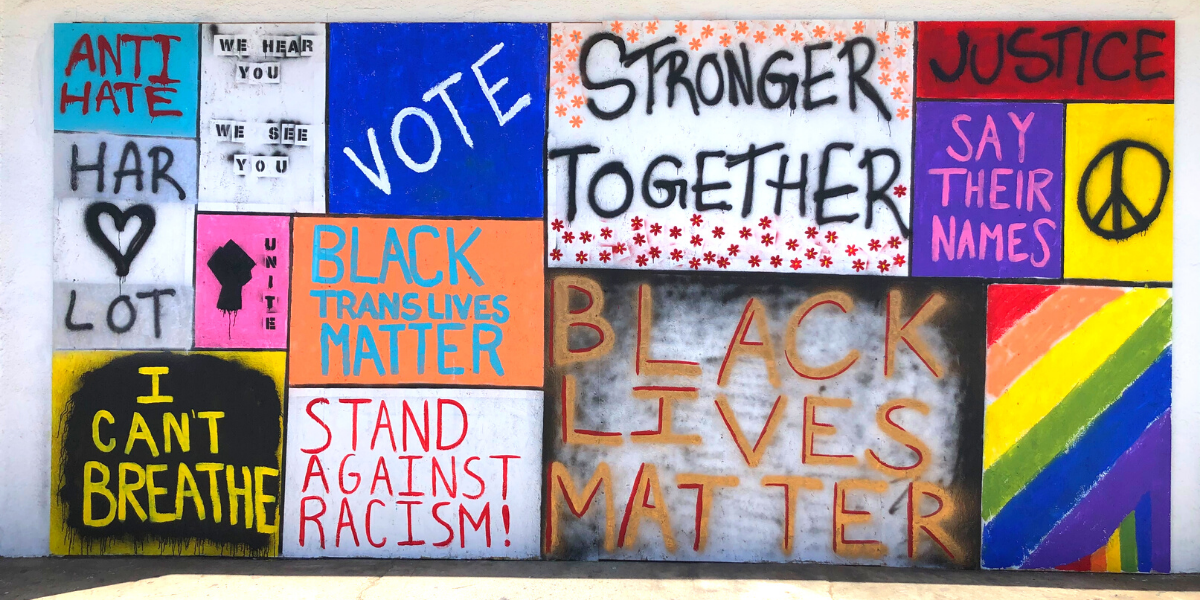 ANTI
HATE
WE HEAR
YOU
WE SEE
YOU
VOTE
STRONGER
TOGETHER
JUSTICE
HAR
LOT
UNITE
SAY
THEIR
NAMES
BLACK
TRANS LIVES
MATTER
I
CAN'T
BREATHE
STAND
AGAINST
RACISM!
BLACK
LIVES
MATTER